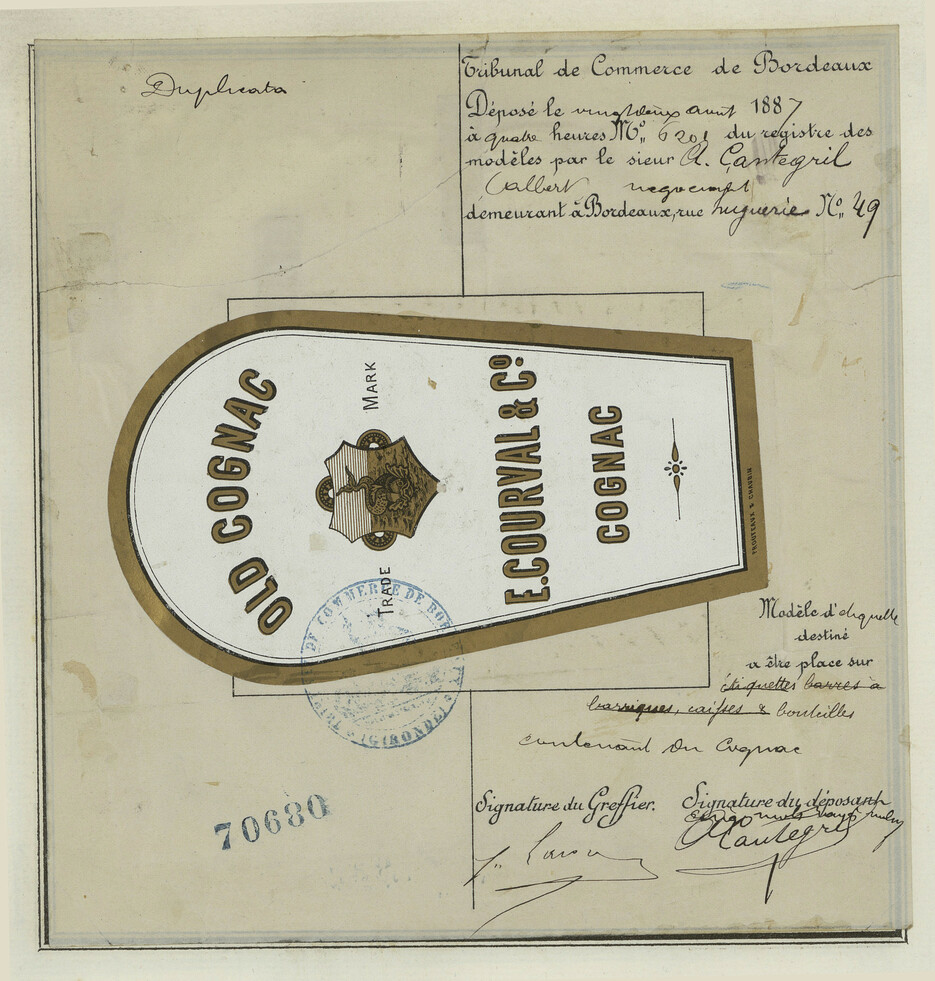 Duplicata
Tribunal de Commerce de Bordeaux
Déposé le vingtdeux avril 1887
à quatre heures Nº 6201 du registre des
modèles par le sieur A. Cantegril
(Albert négociant
demeurant à Bordeaux, rue huguerie Nº 49
OLD COGNAC
TRADE MARK
E. COURVAL & Cº
COGNAC
FROUTEAUX & CHAUVIN
TRIBUNAL DE COMMERCE DE BORDEAUX
(GIRONDE)
Modèle d'etiquette
destiné
a être place sur
étiquettes barres à
barriques, caisses & bouteilles
contenant du Cognac
Signature du Greffier.
Signature du déposant
mots rayés nuls
A Cantegril
70680